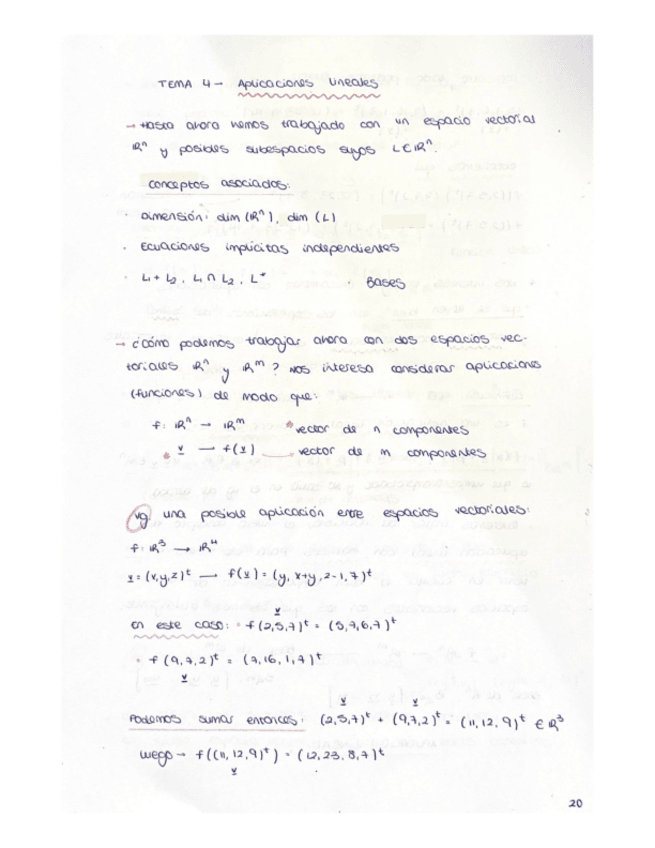 TEMA 4 – Aplicaciones lineales
→ Hasta ahora hemos trabajado con un espacio vectorial
ℝⁿ y posibles subespacios suyos L∈ℝⁿ.
conceptos asociados:
· Dimensión: dim (ℝⁿ), dim (L)
· Ecuaciones implícitas independientes
· L₁ + L₂, L₁ ∩ L₂, L* · Bases
→ ¿cómo podemos trabajar ahora con dos espacios vec-
toriales ℝⁿ y ℝᵐ? Nos interesa considerar aplicaciones
(funciones) de modo que:
f: ℝⁿ → ℝᵐ * vector de n componentes
* v → f(v) → vector de m componentes
vg. una posible aplicación entre espacios vectoriales:
f: ℝ³ → ℝ⁴
v = (x,y,z)ᵗ → f(v) = (y, x+y, z-1, 7)ᵗ
v
en este caso: = f(2,5,7)ᵗ = (5,7,6,7)ᵗ
= f(9,7,2)ᵗ = (7,16,1,7)ᵗ
v
v v
Podemos sumar entonces: (2,5,7)ᵗ + (9,7,2)ᵗ = (11,12,9)ᵗ ∈ ℝ³
luego → f((11,12,9)ᵗ) = (12,23,8,7)ᵗ
v
20